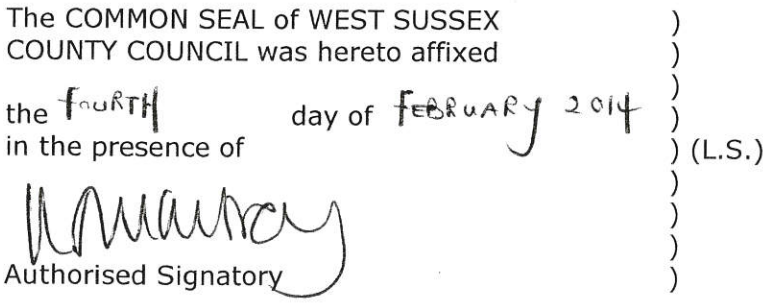 The COMMON SEAL of WEST SUSSEX )
COUNTY COUNCIL was hereto affixed )
)
the FOURTH day of FEBRUARY 2014 )
in the presence of ) (L.S.)
)
)
)
Authorised Signatory )